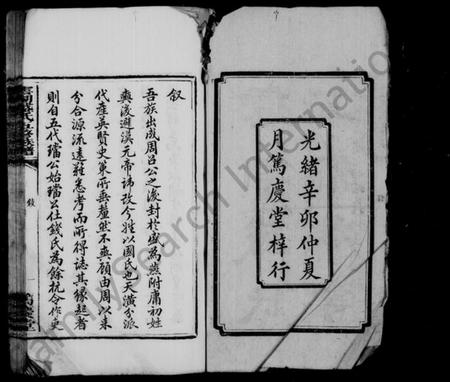 光緒辛卯仲夏
月篤慶堂梓行
叙
吾族出成周召公之後封於盛為燕附庸初姓
奭後避漢元帝諱改今姓以國氏也天潢分派
代產英賢史策所無釐然不爽顧由周以来
分合源流遠難悉考而所得誌其緣起者
則自五代璫公始璫公仕錢氏為餘杭令作史
FamilySearch International